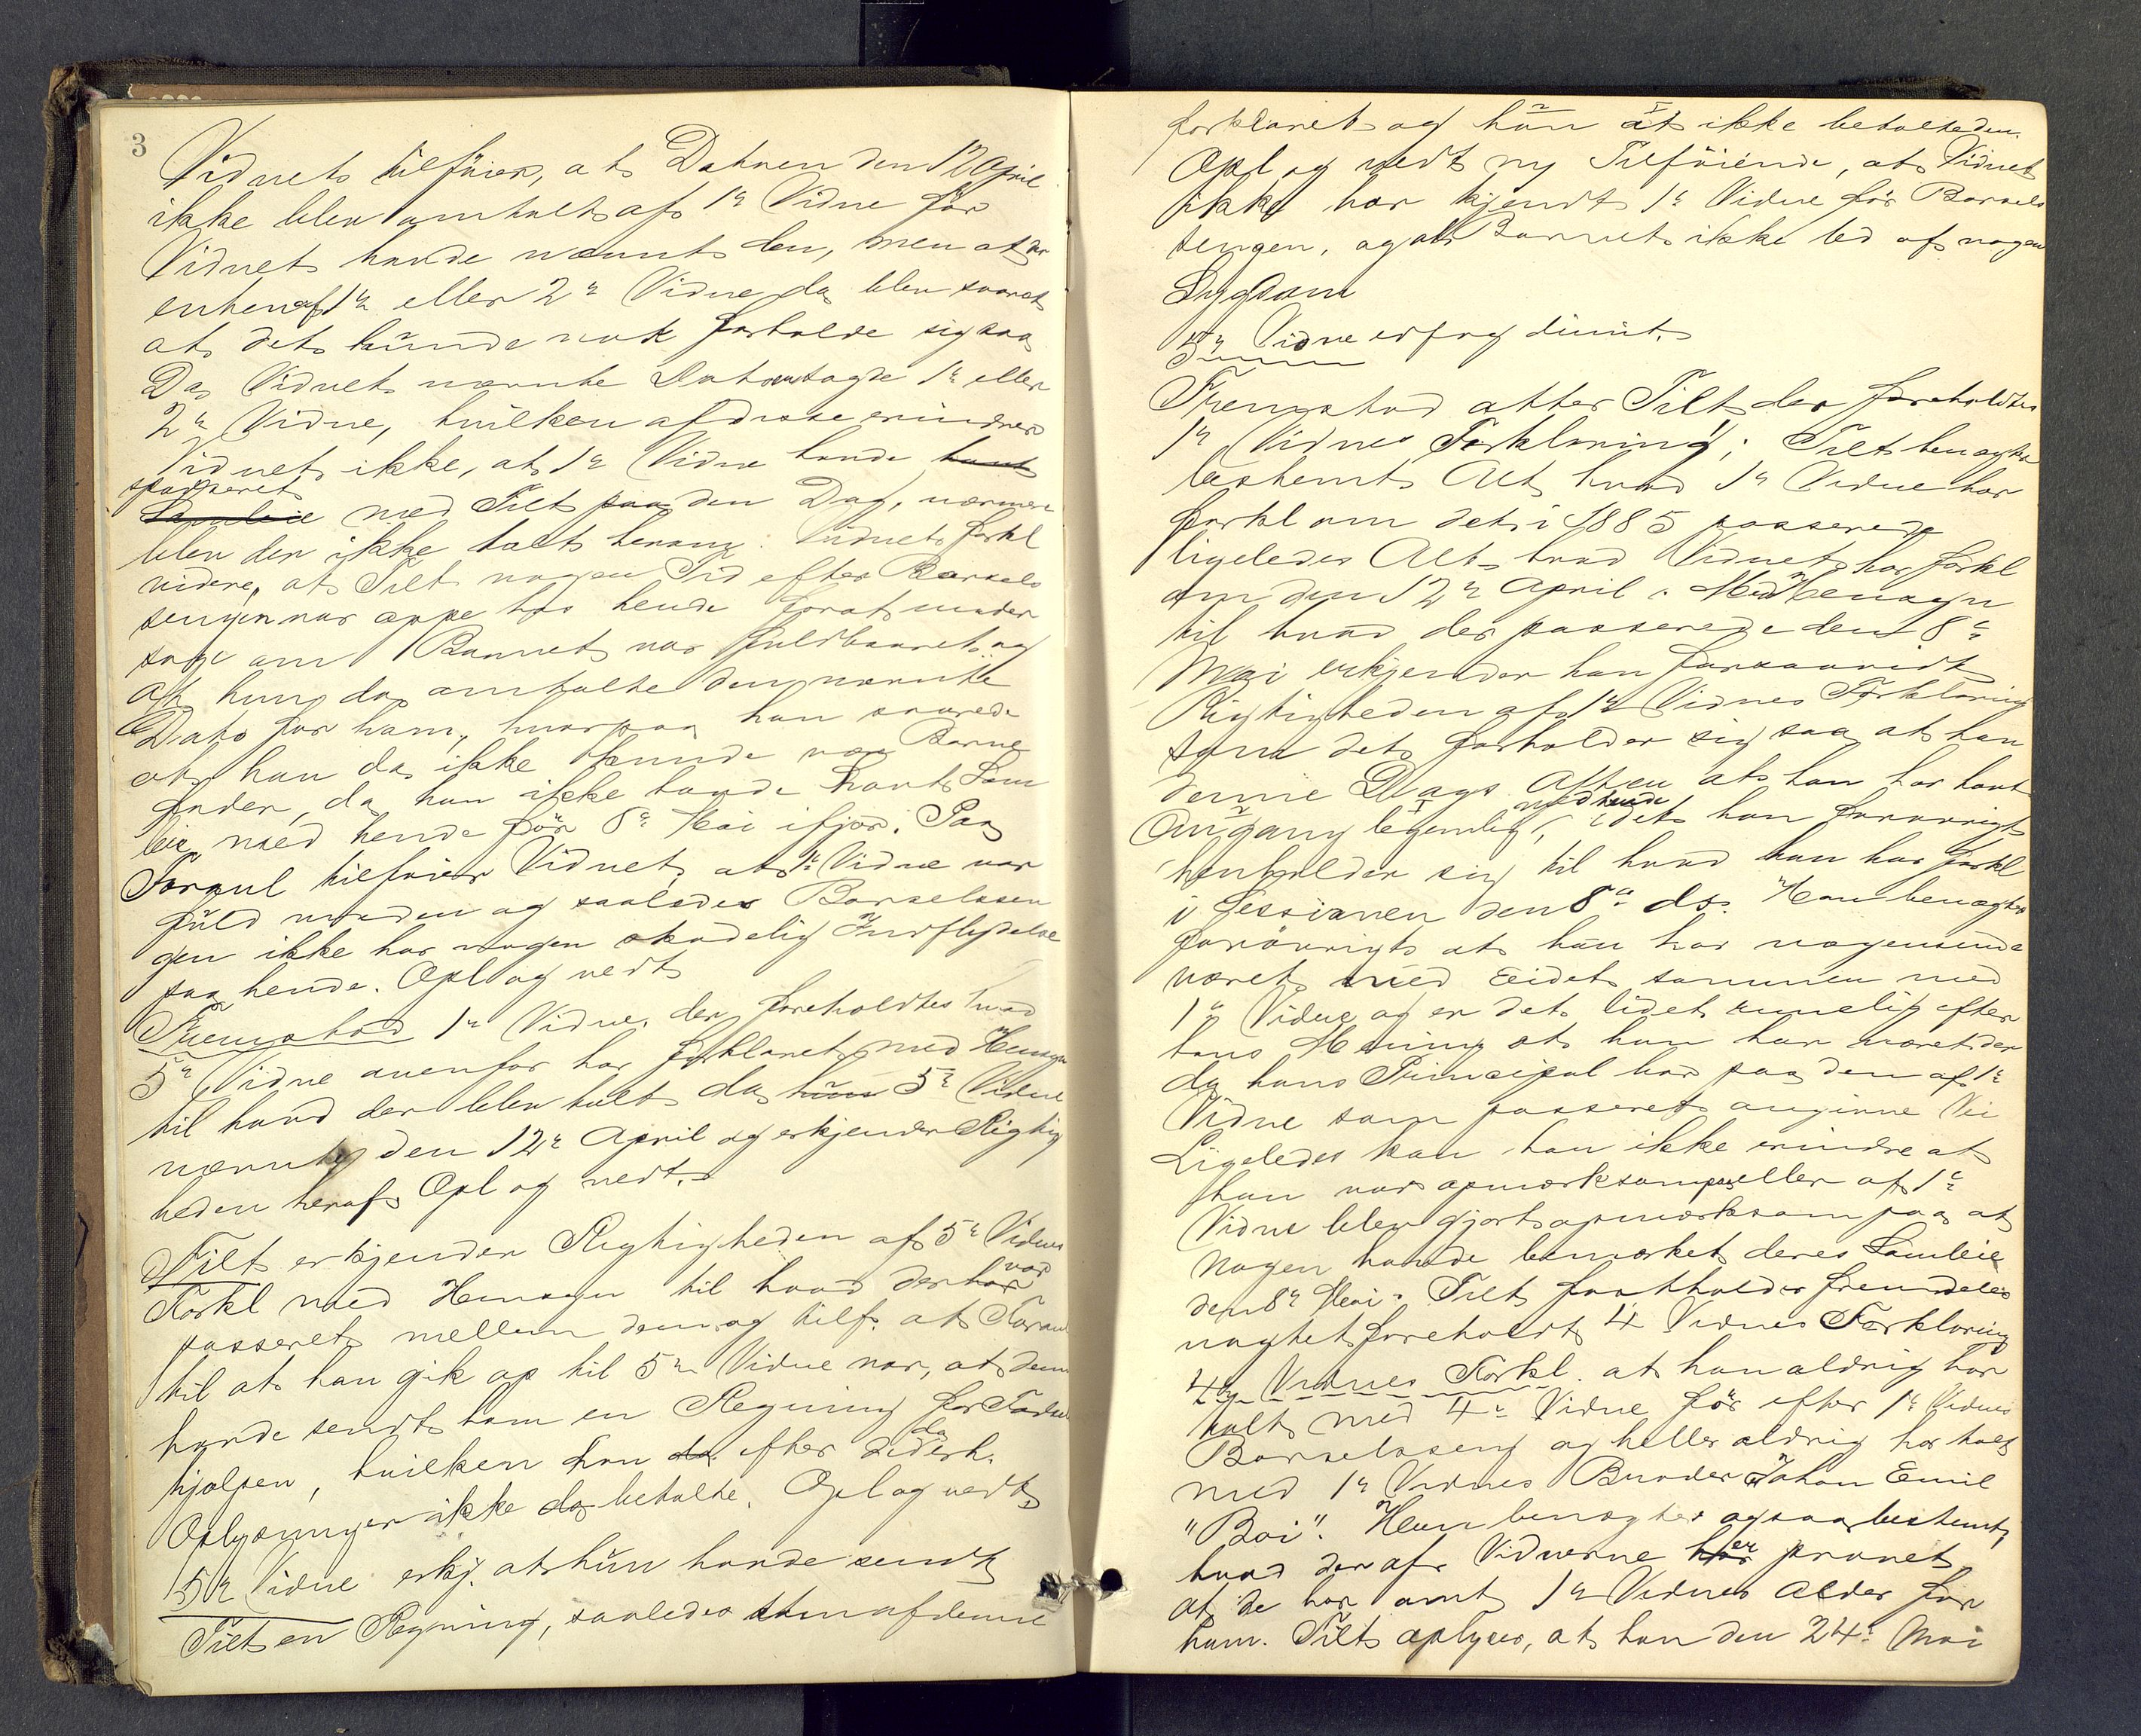 3
Vidnet tilføier, at Datoen den 12 April
ikke blev omtalt af 1ste Vidne før
Vidnet havde nævnt den, men at der
enten af 1ste eller 2det Vidne da blev svaret
at det kunde nok forholde sig saa
Da Vidnet nævnte Datoen sagde 1ste eller
2det Vidne, hvilken af disse erindrer
Vidnet ikke, at 1ste Vidne havde havt
spadseret
Samleie med Tilt paa den Dag, nærmere
blev der ikke talt herom. Vidnet forkl
videre, at Tilt nogen Tid efter Barsel
sengen var oppe hos hende forat under
søge om Barnet var fuldbaaret og
at hun da omtalte den nævnte
Dato for ham, hvorpaa han svarede
at han da ikke kunde være Barne
fader, da han ikke havde havt Sam
leie med hende før 8de Mai ifjor. Paa
Formul tilføier Vidnet, at 1ste Vidne var
fuld moden og saaledes Barselsen
gen ikke har nogen skadelig Indflydelse
paa hende. Opl og vedt
Fremstod 1ste Vidne, der foreholdtes hvad
5te Vidne ovenfor har forklaret med Hensyn
til hvad der blev talt da hun 5te Vidne
nævnte den 12te April og erkjender Rigtig
heden heraf. Opl og vedt.
Tilt erkjender Rigtigheden af 5te Vidnes
Forkl med Hensyn til hvad der har var
passeret mellem dem og tilf. at Foran
til at han gik op til 5te Vidne var, at denne
havde sendt ham en Regning for Fødsel
hjælpen, hvilken han da efter Siderh. da
Oplysninger ikke da betalte. Opl og vedt
5te Vidne erkj. at hun havde sendt
Tilt en Regning, saaledes som af denne
forklaret og han at ikke betalte den.
Opl og vedt ny Tilføiende, at Vidnet
ikke har kjendt 1ste Vidne før Barsel
sengen, og at Barnet ikke led af nogen
Sygdom
5te Vidne erfrag dimit.
Fremstod atter Tilt der foreholdtes
1ste Vidnes Forklaring; Tilt benægter
bestemt Alt hvad 1ste Vidne har
forkl om det i 1885 passerede
ligeledes Alt hvad Vidnet har forkl
om den 12te April. Med Hensyn
til hvad der passerede den 8de
Mai erkjender han forsaavidt
Rigtigheden af 1ste Vidnes Forklaring
som det forholder sig saa at han
denne Dags Aften at han har havt
Omgang legemlig med hende, idet han forøvrigt
henholder sig til hvad han har forkl
i Sessionen den 8de ds. Han benægter
forøvrigt at han har nogensinde
været med Eidet sammen med
1ste Vidne og er det lidet rimelig efter
hans Mening at han har været der
da hans Principal bor paa den af 1ste
Vidne som passeret angivne Vei
Ligeledes kan han ikke erindre at
han var opmærksom paa eller af 1ste
Vidne blev gjort opmærksom paa at
nogen havde bemærket deres Samleie
den 8de Mai. Tilt fastholder fremdeles
uagtet foreholdt 4 Vidnes Forklaring
4de Vidnes Forkl. at han aldrig har
talt med 4de Vidne før efter 1ste Vidnes
Barselseng og heller aldrig har talt
med 1ste Vidnes Broder Johan Emil
"Boi". Han benægter ogsaa bestemt,
hvad der af Vidnerne har er prøvet
at de har omt 1ste Vidnes Alder for
ham. Tilt oplyser, at han den 24de Mai